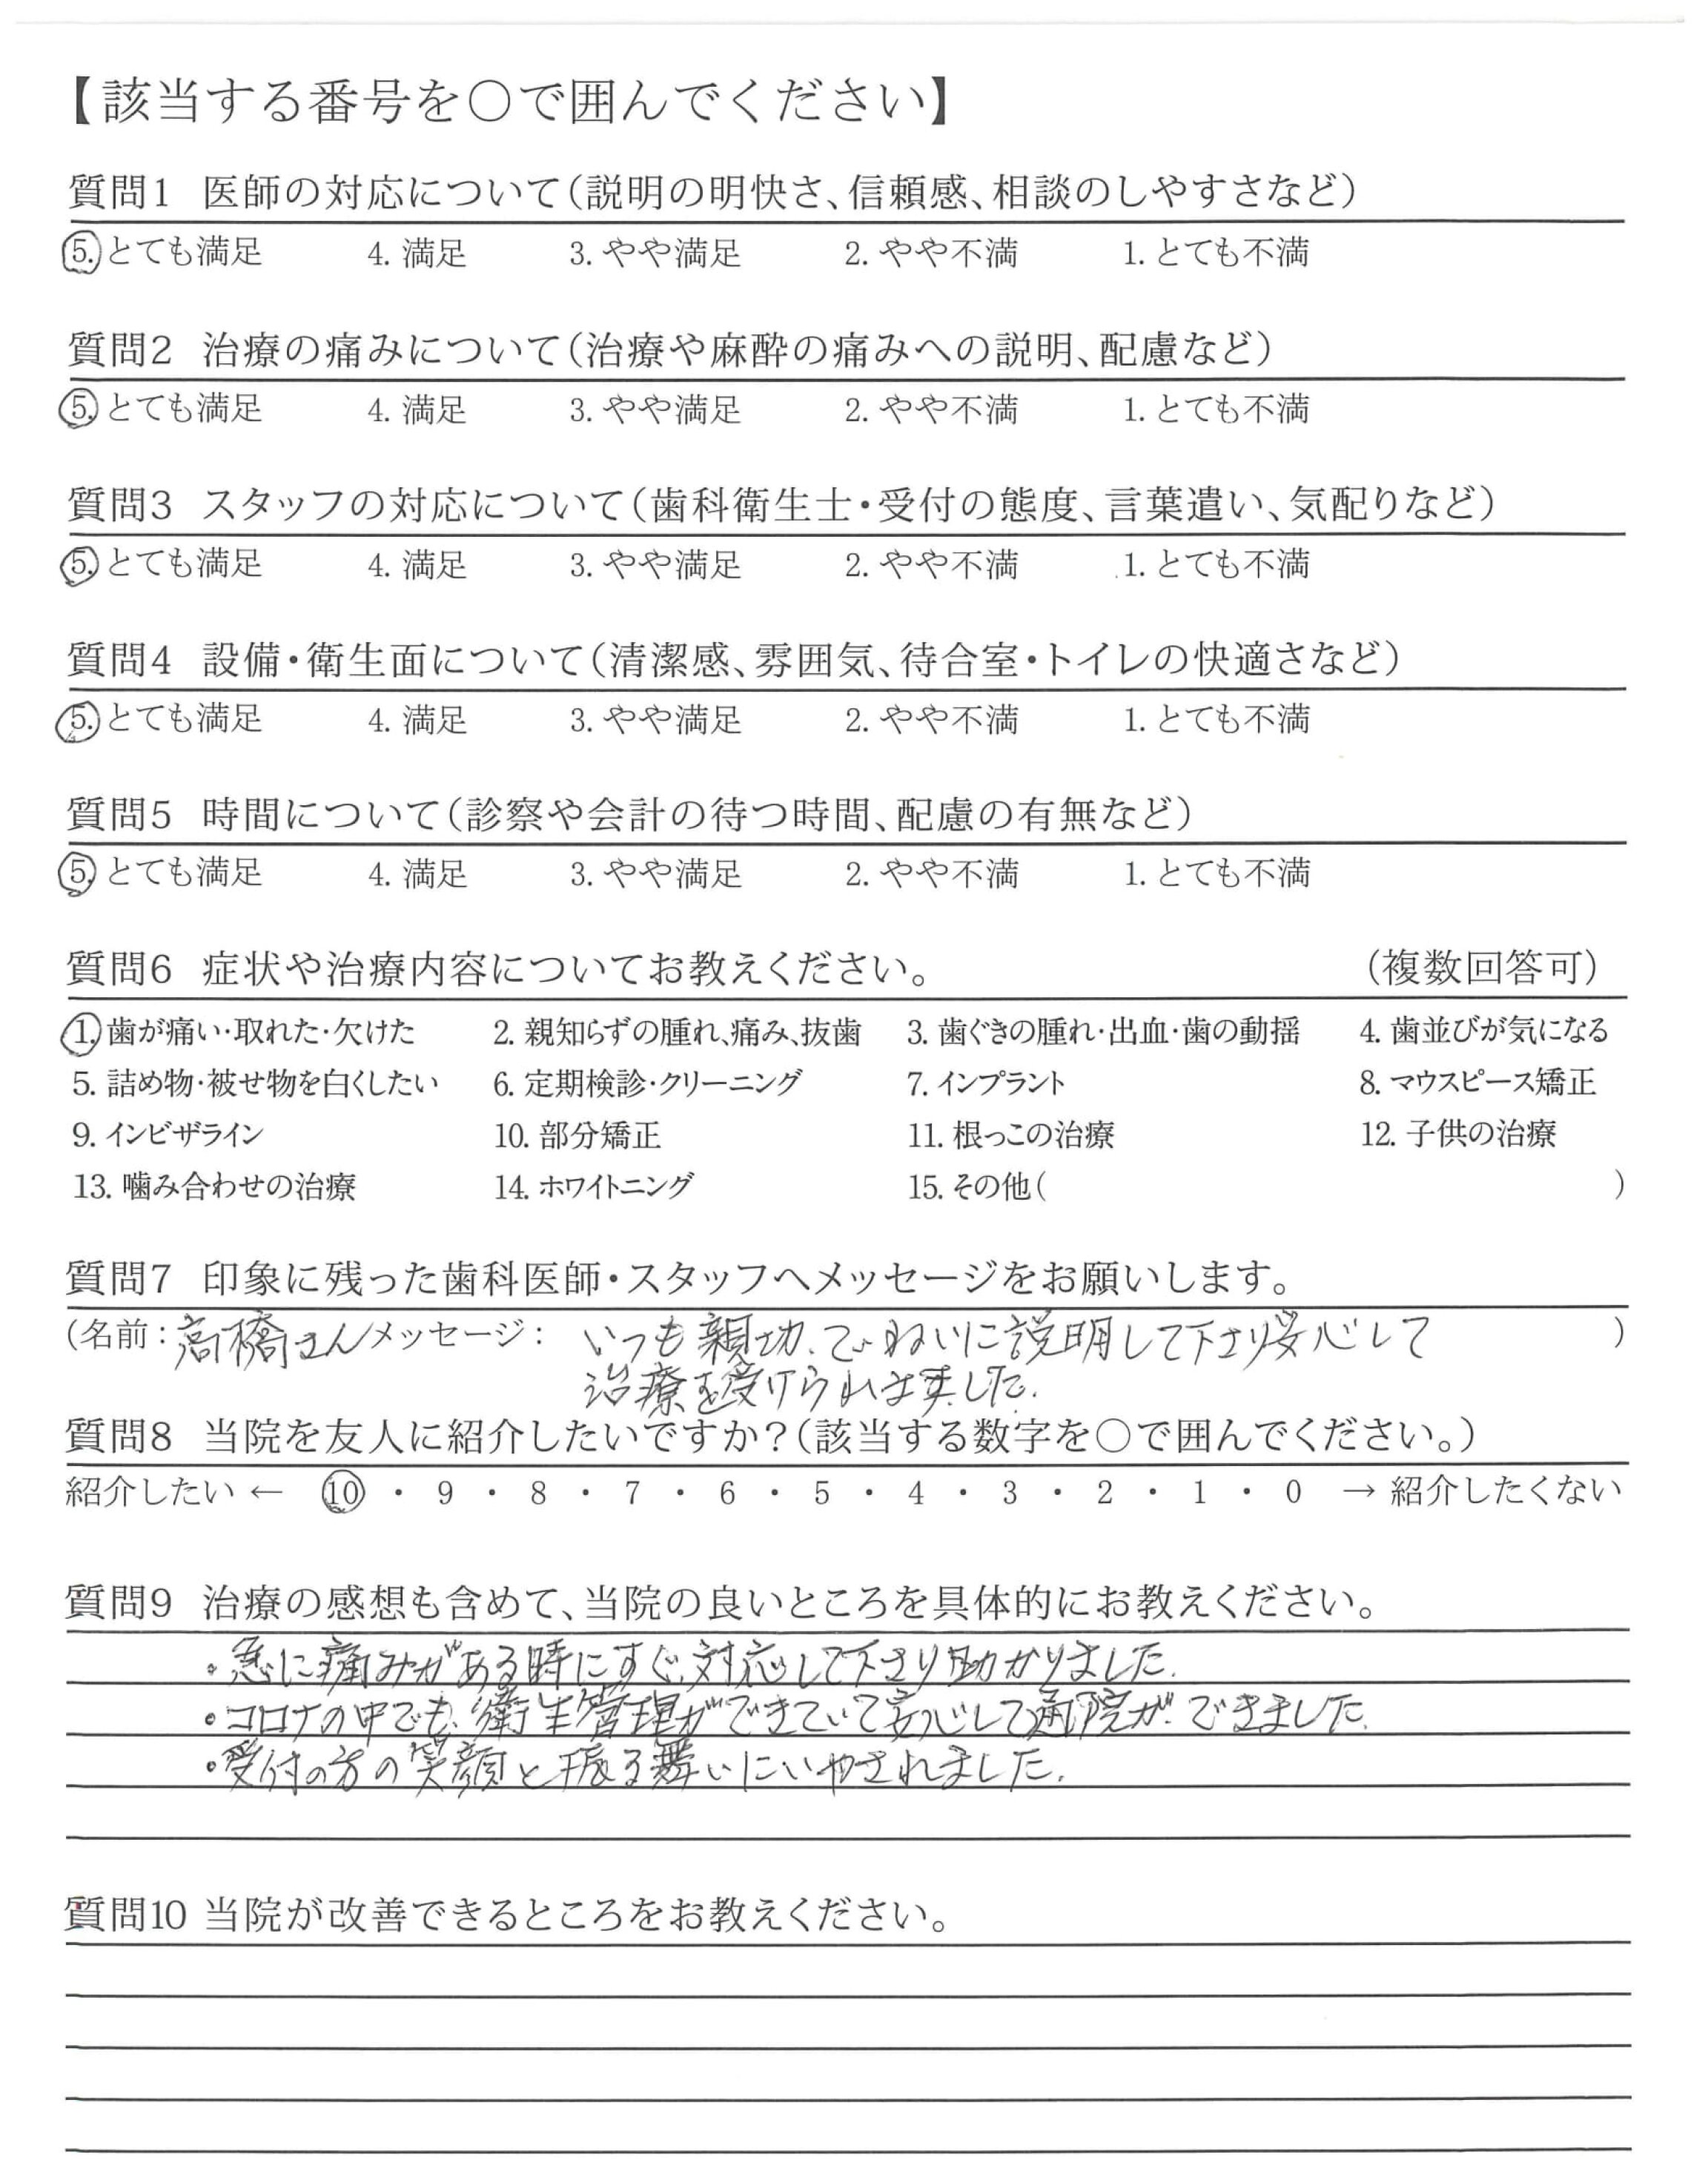 【該当する番号を〇で囲んでください】
質問1 医師の対応について(説明の明快さ、信頼感、相談のしやすさなど)
5. とても満足 4. 満足 3. やや満足 2. やや不満 1. とても不満
質問2 治療の痛みについて(治療や麻酔の痛みへの説明、配慮など)
5. とても満足 4. 満足 3. やや満足 2. やや不満 1. とても不満
質問3 スタッフの対応について(歯科衛生士・受付の態度、言葉遣い、気配りなど)
5. とても満足 4. 満足 3. やや満足 2. やや不満 1. とても不満
質問4 設備・衛生面について(清潔感、雰囲気、待合室・トイレの快適さなど)
5. とても満足 4. 満足 3. やや満足 2. やや不満 1. とても不満
質問5 時間について(診察や会計の待つ時間、配慮の有無など)
5. とても満足 4. 満足 3. やや満足 2. やや不満 1. とても不満
質問6 症状や治療内容についてお教えください。 (複数回答可)
1. 歯が痛い・取れた・欠けた 2. 親知らずの腫れ、痛み、抜歯 3. 歯ぐきの腫れ・出血・歯の動揺 4. 歯並びが気になる
5. 詰め物・被せ物を白くしたい 6. 定期検診・クリーニング 7. インプラント 8. マウスピース矯正
9. インビザライン 10. 部分矯正 11. 根っこの治療 12. 子供の治療
13. 噛み合わせの治療 14. ホワイトニング 15. その他( )
質問7 印象に残った歯科医師・スタッフへメッセージをお願いします。
(名前：高橋さん メッセージ： いつも親切、ていねいに説明して下さり安心して )
治療を受けられました。
質問8 当院を友人に紹介したいですか？(該当する数字を〇で囲んでください。)
紹介したい ← 10 ・ 9 ・ 8 ・ 7 ・ 6 ・ 5 ・ 4 ・ 3 ・ 2 ・ 1 ・ 0 → 紹介したくない
質問9 治療の感想も含めて、当院の良いところを具体的にお教えください。
・急に痛みがある時にすぐ対応して下さり助かりました。
・コロナの中でも、衛生管理ができていて安心して通院ができました。
・受付の方の笑顔と振る舞いにいやされました。
質問10 当院が改善できるところをお教えください。